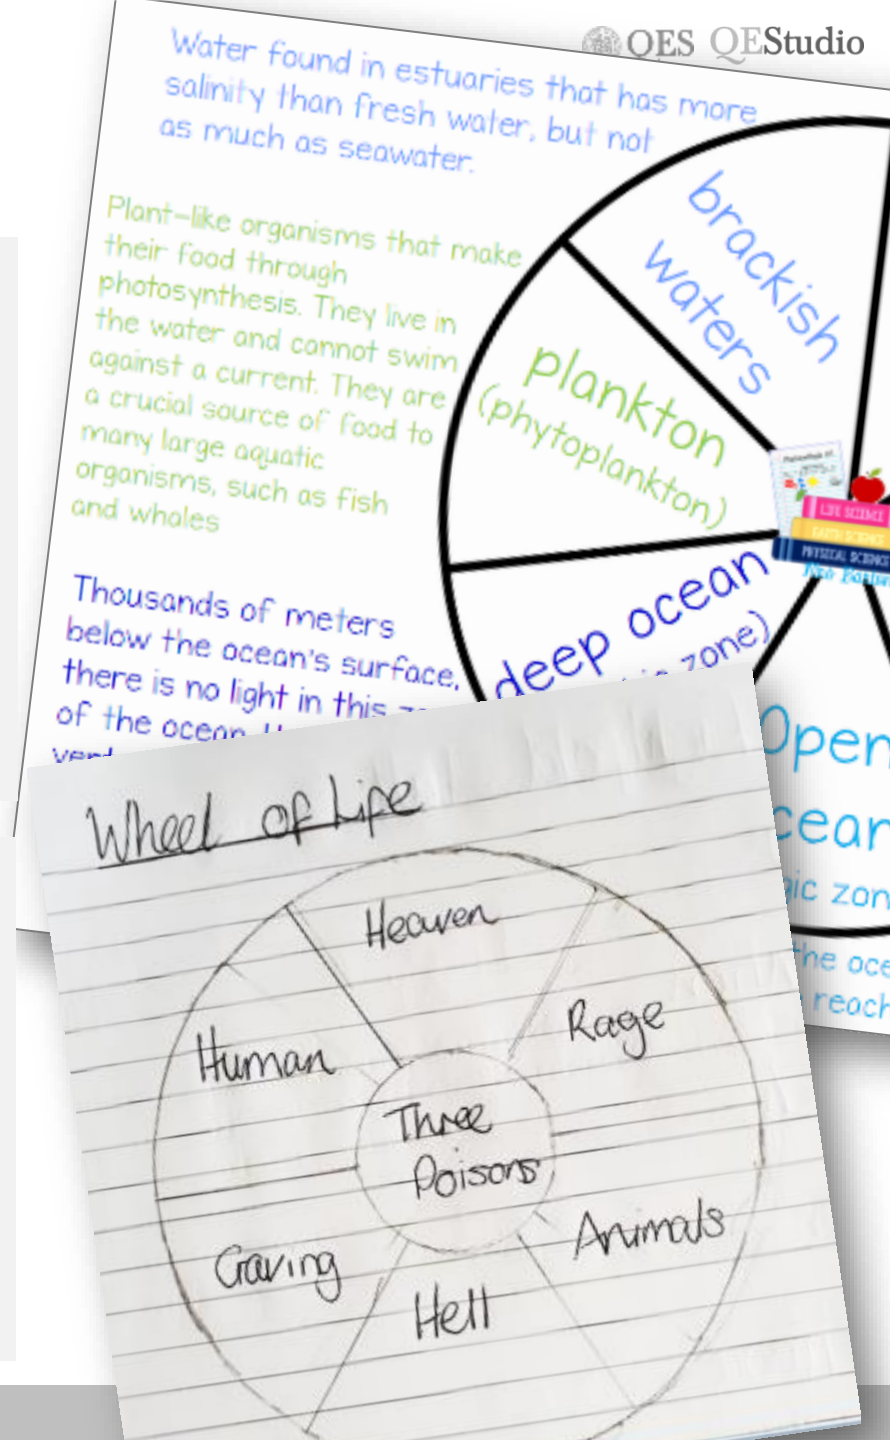 QES QEStudio
Water found in estuaries that has more
salinity than fresh water, but not
as much as seawater.
Plant-like organisms that make
their food through
photosynthesis. They live in
the water and cannot swim
against a current. They are
a crucial source of food to
many large aquatic
organisms, such as fish
and whales
Thousands of meters
below the ocean's surface,
there is no light in this
of the ocean.
brackish
waters
plankton
(phytoplankton)
deep ocean
zone)
LIFE SCIENCE
EARTH SCIENCE
PHYSICAL SCIENCE
Open
the
reach
Wheel of Life
Heaven
Rage
Human
Three
Poisons
Animals
Craving
Hell